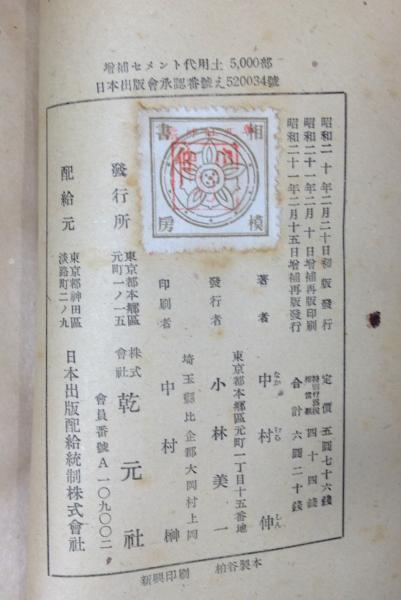 増補セメント代用土 5,000部
日本出版會承認番號え520034號
昭和二十年二月二十日初版發行
昭和二十一年二月十日増補再版印刷
昭和二十一年二月十五日増補再版發行
定價 五圓七十六錢
四十四錢
合計 六圓二十錢
相模書房
著者 中村伸
なか むら しん
東京都本郷區元町一丁目十五番地
發行者 小林美一
埼玉縣比企郡大岡村上岡
印刷者 中村榊
發行所
東京都本郷區
元町一ノ一五
株式會社 乾元社
會員番號A一〇九〇〇二
配給元
東京都神田區
淡路町二ノ九
日本出版配給統制株式會社
新興印刷 柏谷製本